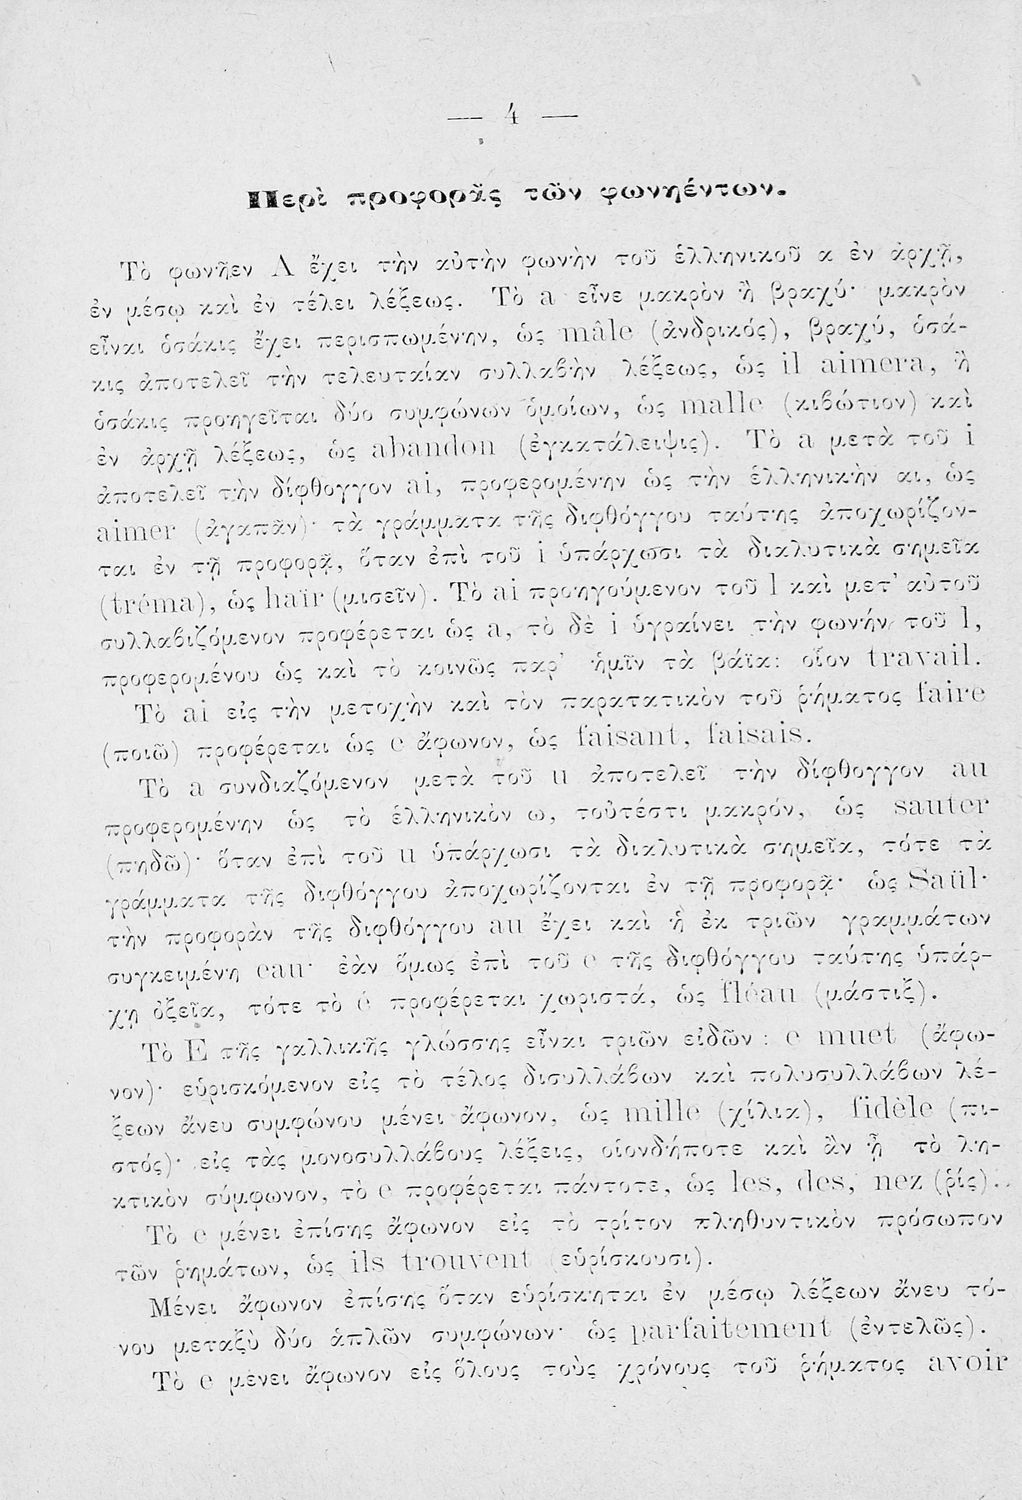 — 4 —
Περὶ προφορᾶς τῶν φωνηέντων.
Τὸ φωνῆεν A ἔχει τὴν αὐτὴν φωνὴν τοῦ ἑλληνικοῦ α ἐν ἀρχῇ,
ἐν μέσῳ καὶ ἐν τέλει λέξεως. Τὸ a εἶνε μακρὸν ἢ βραχύ· μακρὸν
εἶναι ὁσάκις ἔχει περισπωμένην, ὡς mâle (ἀνδρικός), βραχύ, ὁσά-
κις ἀποτελεῖ τὴν τελευταίαν συλλαβὴν λέξεως, ὡς il aimera, ἢ
ὁσάκις προηγεῖται δύο συμφώνων ὁμοίων, ὡς malle (κιβώτιον) καὶ
ἐν ἀρχῇ λέξεως, ὡς abandon (ἐγκατάλειψις). Τὸ a μετὰ τοῦ i
ἀποτελεῖ τὴν δίφθογγον ai, προφερομένην ὡς τὴν ἑλληνικὴν αι, ὡς
aimer (ἀγαπᾶν)· τὰ γράμματα τῆς διφθόγγου ταύτης ἀποχωρίζον-
ται ἐν τῇ προφορᾷ, ὅταν ἐπὶ τοῦ i ὑπάρχωσι τὰ διαλυτικὰ σημεῖα
(tréma), ὡς haïr (μισεῖν). Τὸ ai προηγούμενον τοῦ l καὶ μετ' αὐτοῦ
συλλαβιζόμενον προφέρεται ὡς a, τὸ δὲ i ὑγραίνει τὴν φωνὴν τοῦ l,
προφερομένου ὡς καὶ τὸ κοινῶς παρ' ἡμῖν τὰ βάϊα: οἷον travail.
Τὸ ai εἰς τὴν μετοχὴν καὶ τὸν παρατατικὸν τοῦ ῥήματος faire
(ποιῶ) προφέρεται ὡς e ἄφωνον, ὡς faisant, faisais.
Τὸ a συνδιαζόμενον μετὰ τοῦ u ἀποτελεῖ τὴν δίφθογγον au
προφερομένην ὡς τὸ ἑλληνικὸν ω, τοὐτέστι μακρόν, ὡς sauter
(πηδῶ)· ὅταν ἐπὶ τοῦ u ὑπάρχωσι τὰ διαλυτικὰ σημεῖα, τότε τὰ
γράμματα τῆς διφθόγγου ἀποχωρίζονται ἐν τῇ προφορᾷ· ὡς Saül·
τὴν προφορὰν τῆς διφθόγγου au ἔχει καὶ ἡ ἐκ τριῶν γραμμάτων
συγκειμένη eau· ἐὰν ὅμως ἐπὶ τοῦ e τῆς διφθόγγου ταύτης ὑπάρ-
χῃ ὀξεῖα, τότε τὸ é προφέρεται χωριστά, ὡς fléau (μάστιξ).
Τὸ E τῆς γαλλικῆς γλώσσης εἶναι τριῶν εἰδῶν : e muet (ἄφω-
νον)· εὑρισκόμενον εἰς τὸ τέλος δισυλλάβων καὶ πολυσυλλάβων λέ-
ξεων ἄνευ συμφώνου μένει ἄφωνον, ὡς mille (χίλια), fidèle (πι-
στός)· εἰς τὰς μονοσυλλάβους λέξεις, οἱονδήποτε καὶ ἂν ᾖ τὸ λη-
κτικὸν σύμφωνον, τὸ e προφέρεται πάντοτε, ὡς les, des, nez (ῥίς).
Τὸ e μένει ἐπίσης ἄφωνον εἰς τὸ τρίτον πληθυντικὸν πρόσωπον
τῶν ῥημάτων, ὡς ils trouvent (εὑρίσκουσι).
Μένει ἄφωνον ἐπίσης ὅταν εὑρίσκηται ἐν μέσῳ λέξεων ἄνευ τό-
νου μεταξὺ δύο ἁπλῶν συμφώνων· ὡς parfaitement (ἐντελῶς).
Τὸ e μένει ἄφωνον εἰς ὅλους τοὺς χρόνους τοῦ ῥήματος avoir